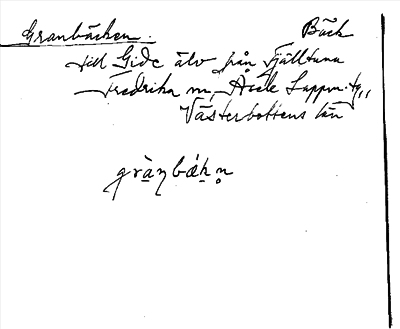 Granbäcken. Bäck
till Gide älv från Fjälltuna
Fredrika sn, Åsele Lappm. tg.,
Västerbottens län
grànbǽk̠n̥